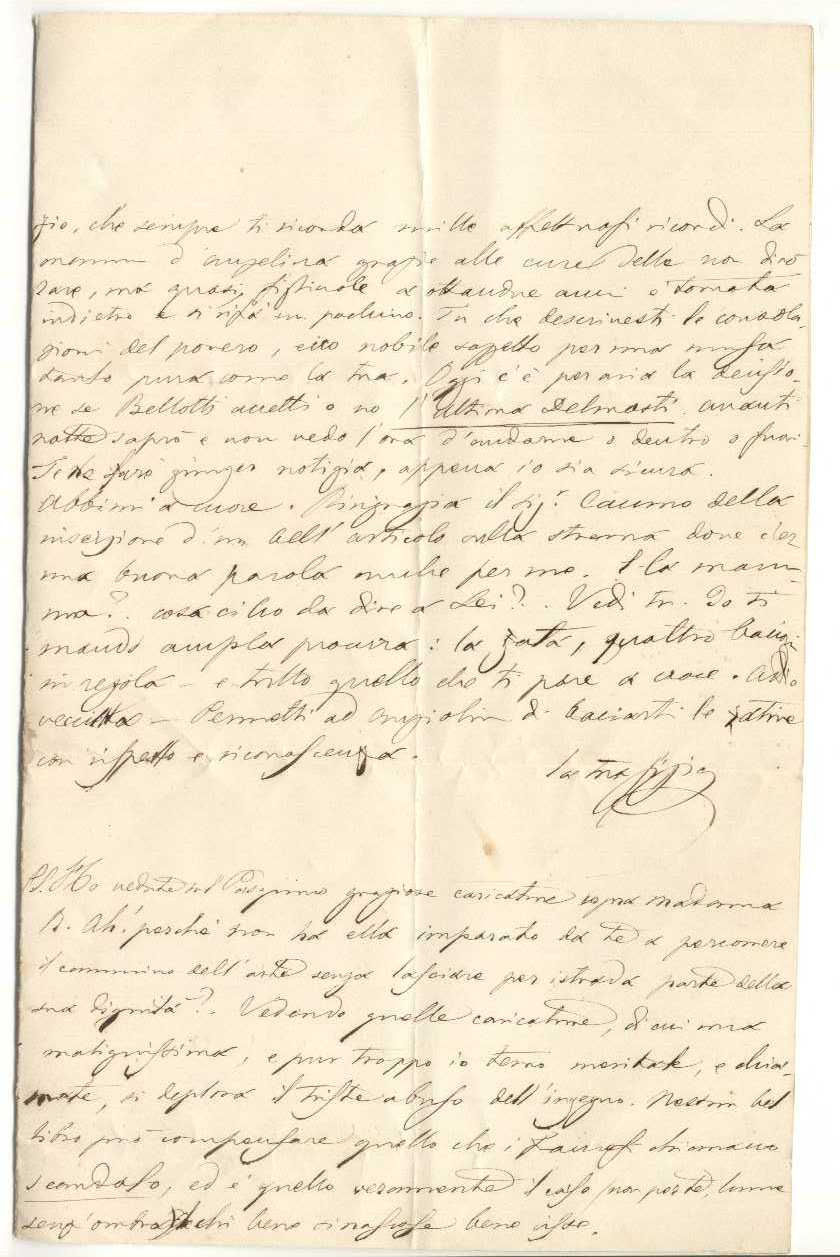 zio, che sempre ti ricorda mille affettuosi ricordi. La
mamma d'Angelina grazie alle cure delle non dirò
rare, ma quasi, figliuole a ottandue anni è tornata
indietro e si rifà un pochino. Tu che descrivesti le consola-
zioni del povero, ecco nobile soggetto per una musa
tanto pura come la tua. Oggi c'è per aria la decisio-
ne se Bellotti accetti o no l'Ultima Delmosti. avanti
notte saprò e non vedo l'ora d'andarne o dentro o fuori.
Te ne farò giunger notizia, appena io sia sicura.
Abbimi a cuore. Ringrazia il sig.r Caumo della
inserzione d'un bell'articolo sulla strenna dove c'er
una buona parola anche per me. E la mam-
ma? cosa ci ho da dire a Lei? Vedi tu. Io ti
mando ampla procura: la zata, quattro bacioni
in regola – e tutto quello che ti pare a croce. Addio
vecietta – Permetti ad Angiolin di baciarti le zatine
con rispetto e riconoscenza.
la tua Gigia
P.S. Ho vedute sul Pasquino graziose caricature sopra madama
B. Ah! perchè non ha ella imparato da te a percorrere
il cammino dell'arte senza lasciare per istrada parte della
sua dignità? Vedendo quelle caricature, di cui una
malignissima, e pur troppo io temo meritate, e chia-
mate, si deplora il triste abuso dell'ingegno. Nessun bel
libro può compensare quello che i chiamano
scandalo, ed è quello veramente il caso lume
senz'ombra chi bene si nascose bene visse.